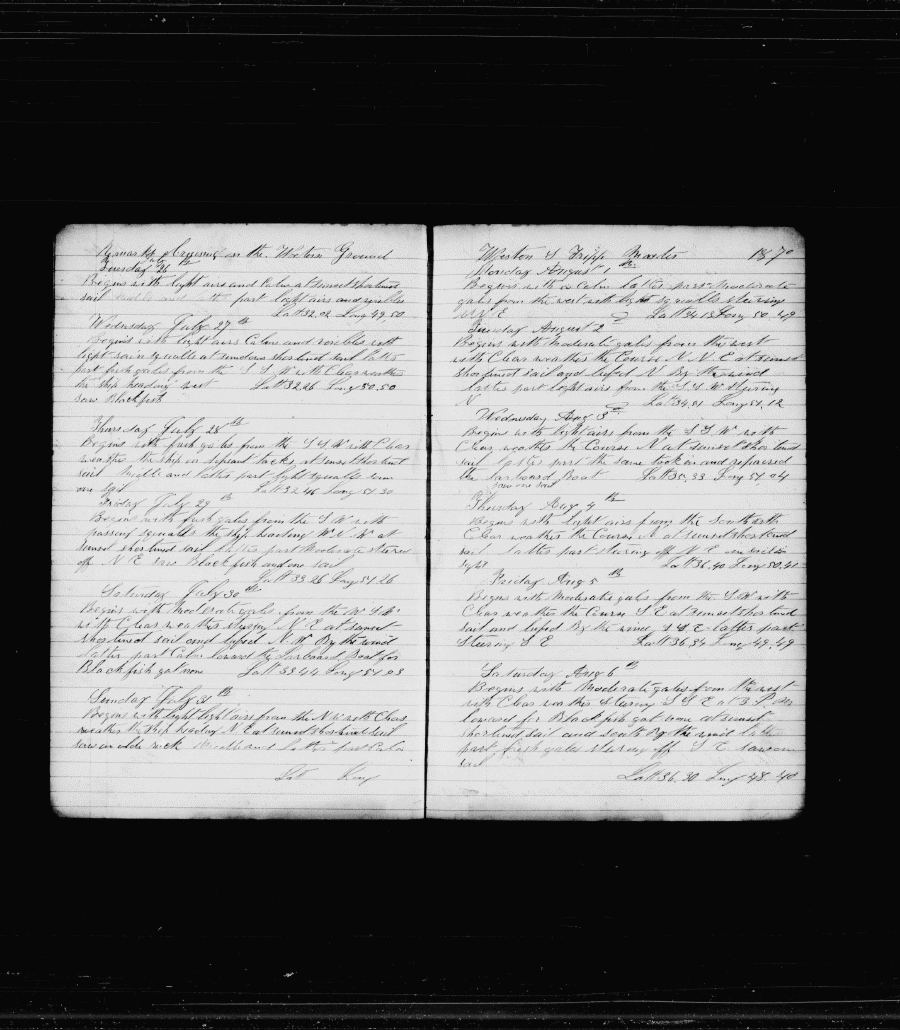 Remarks Cruising on the Western Ground
Tuesday 26th
Begins with light airs and Calm at Sunset shortened
sail middle and latter part light airs and rieples
Latt 32.02 Long 49,50
Wednesday July 27th
Begins with light airs Calms and rieples with
light rain squalls at sundown shortened sail latter
part fresh gales from the S S W with Clear weather
the ship heading west Latt 32.26 Long 50,50
saw Blackfish
Thursday July 28th
Begins with fresh gales from the S S W with Clear
weather the ship on different tacks, at sunset shortend
sail Middle and latter part light squalls saw
one sail Latt 32 46 Long 51 30
Friday July 29th
Begins with fresh gales from the S W with
passing squalls the ship heading W N W at
sunset shortined sail latter part Moderate steared
off N E saw Black fish and one sail
Latt 33 26 Long 51 26
Saturday July 30th
Begins with Moderate gales from the W S W
with Clear weather stearing N E at sunset
shortined sail and lufed N W By the wind
latter part Calm lowerd the Larboard Boat for
Blackfish got none Latt 33 44 Long 51 03
Sunday July 31th
Begins with light light airs from the N W with Clear
weather the ship heading N E at sunset shortined sail
saw an olde reck Middle and latter part Calm
Latt Long
Weston S Tripp Master 1870
Monday August 1th
Begins with a Calm latter part Moderate
gales from the west with light squalls stearing
N N E Latt 34 13 Long 50 49
Tuesday August 2
Begins with Moderate gales from the west
with Clear weather the Course N N E at sunset
shortined sail and lufed N By the wind
latter part light airs from the S S W Stearing
N Latt 34,51 Long 51,12
Wednesday Aug 3rd
Begins with light airs from the S S W with
Clear weather the Course N at sunset shortend
sail latter part the same took in and repaired
the Larboard Boat Latt 35,33 Long 51 04
saw one sail
Thursday Aug 4th
Begins with light airs from the South with
Clear weather the Course N at sunset shortend
sail latter part stearing off N E one sail in
sight Latt 36.40 Long 50,41
Friday Aug 5th
Begins with Moderate gales from the S W with
Clear weather the Course S E at Sunset shortend
sail and lufed By the wind S S E latter part
Stearing S E Latt 36,34 Long 49,49
Saturday Aug 6th
Begins with Moderate gales from the west
with Clear weather Stearing S S E at 3 P M
lowered for Blackfish got none at sunset
shortined sail and South By the wind latter
part fresh gales stearing off S E saw one
sail
Latt 36.30 Long 48.40